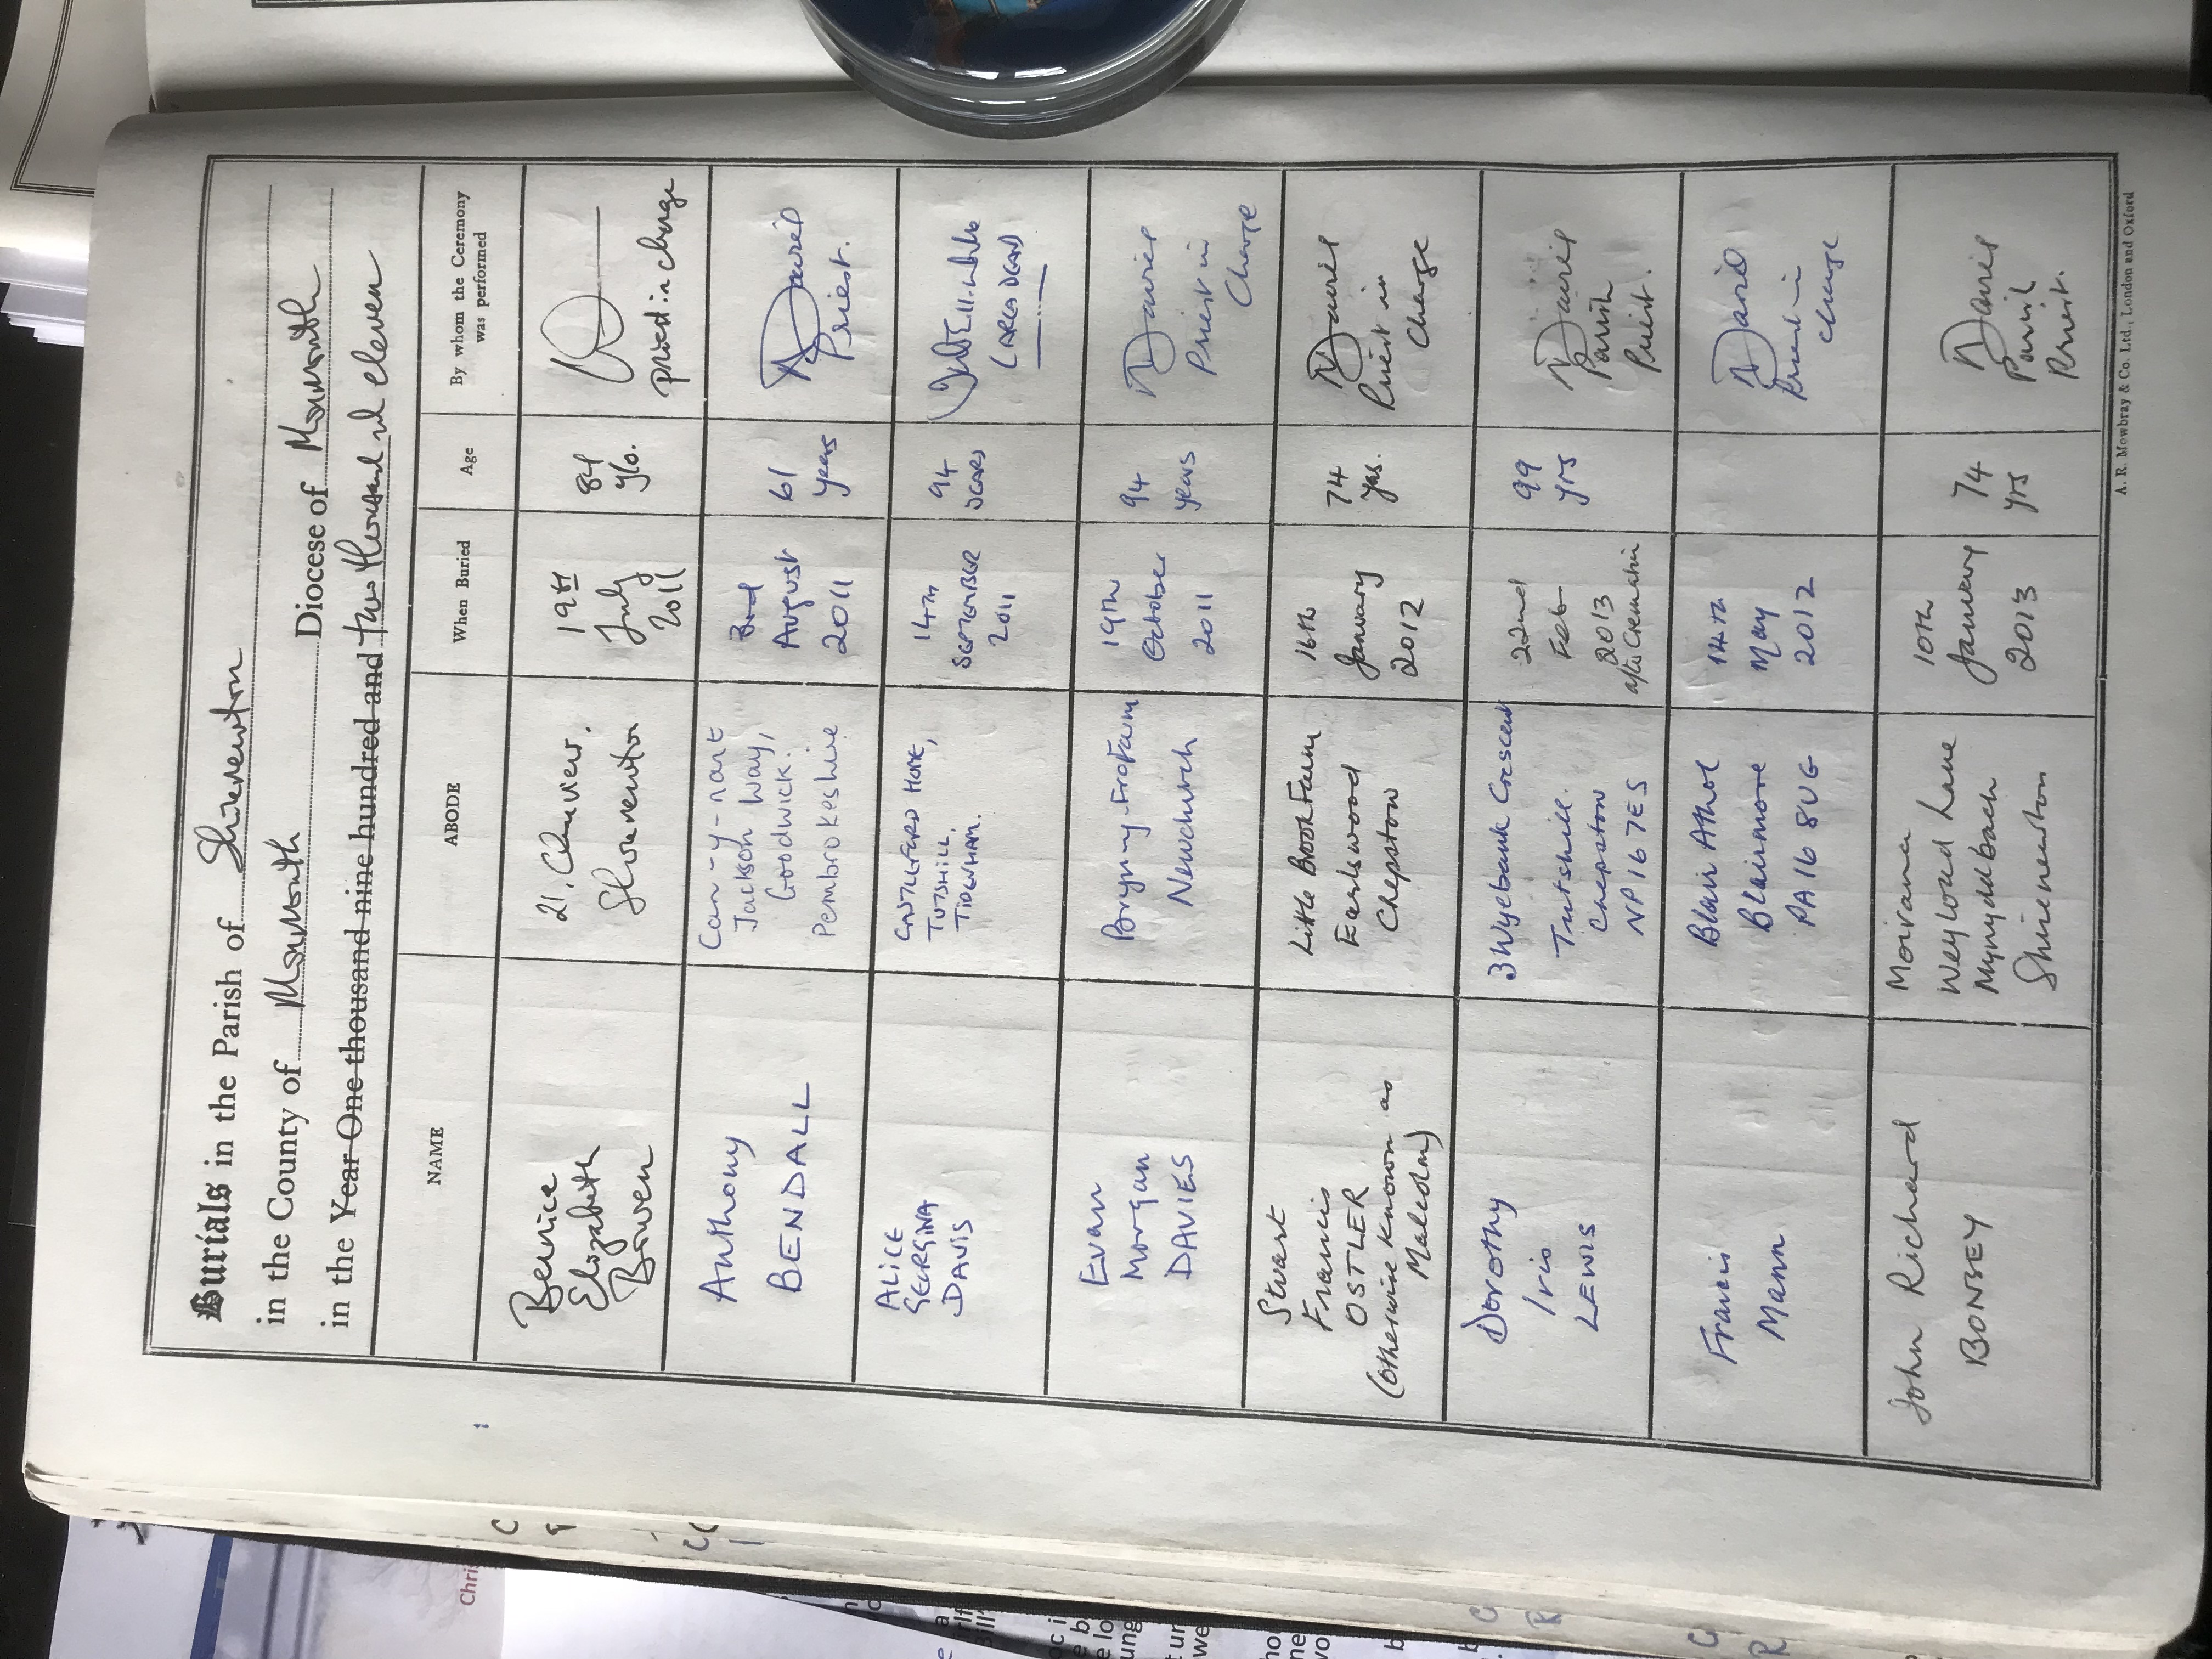 Burials in the Parish of Shirenewton
in the County of Monmouth Diocese of Monmouth
in the Year One thousand nine hundred and two thousand and eleven
NAME ABODE When Buried Age By whom the Ceremony was performed
Bernice
Elizabeth
Bowen
21.
Shirenewton
19th
July
2011
84
y/o.
priest in charge
Anthony
BENDALL
Can-y-nant
Jackson Way,
Goodwick.
Pembrokeshire
3rd
August
2011
61
years
Davies
Priest.
ALICE
GEORGINA
DAVIS
CASTLEFORD HOME,
TUTSHILL,
TIDENHAM.
14TH
SEPTEMBER
2011
94
YEARS
(AREA DEAN)
Evan
Morgan
DAVIES
Newchurch
19th
October
2011
94
years
Davies
Priest in
Charge
Stuart
Francis
OSTLER
(otherwise known as
Malcolm)
Little Brook Farm
Earlswood
Chepstow
16th
January
2012
74
yrs.
Davies
Priest in
Charge
Dorothy
Iris
LEWIS
3 Wyebank Crescent
Tutshill.
Chepstow
NP16 7ES
22nd
Feb
2013
after Cremation
99
yrs
Davies
Parish
Priest.
Francis
Mann
Blair Athol
Blairmore
PA16 8UG
14th
May
2012
Davies
Priest in
charge
John Richard
BONSEY
Weyload Lane
Mynyddbach
Shirenewton
10th
January
2013
74
yrs
Davies
Parish
Priest.
A. R. Mowbray & Co. Ltd., London and Oxford